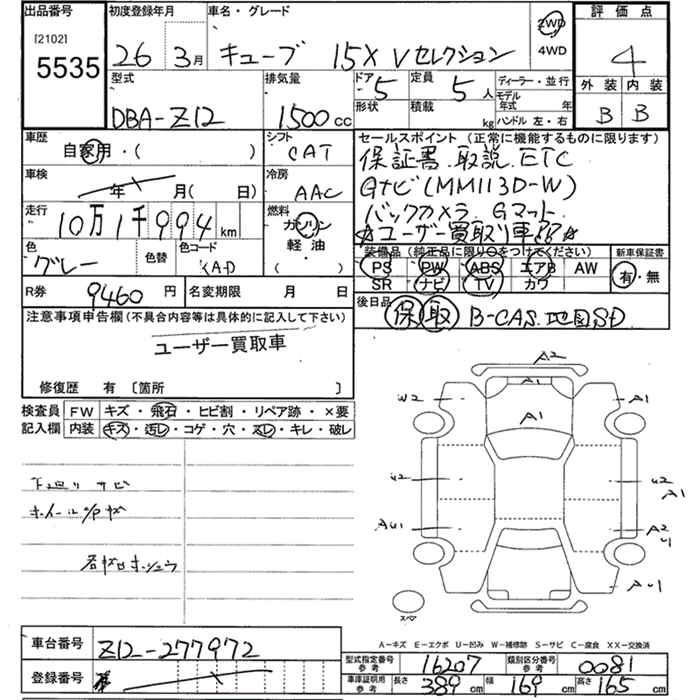 出品番号 初度登録年月 車名・グレード 2WD 4WD 評価点
[2102] 5535 26 3月 キューブ 15X Vセレクション 4
型式 排気量 ドア 定員 ディーラー・並行 外装 内装
DBA-Z12 1500cc 5 5人 モデル年式 年 B B
形状 積載 kg ハンドル 左・右
車歴 シフト セールスポイント (正常に機能するものに限ります)
自家用・( ) CAT 保証書.取説.ETC
車検 年 月(日) 冷房 AAC Gナビ(MM113D-W)
走行 10万1千994km 燃料 ガソリン 軽油 ( ) バックカメラ.Gマット.
☆ユーザー買取り車
色 グレー 色替 色コード KAD 装備品 (純正品に限り○をつけてください) 新車保証書
PS PW ABS エアB AW 有・無
SR ナビ TV カワ
R券 9460円 名変期限 月 日 後日品 保 取 B-CAS.地図SD
注意事項申告欄(不具合内容等は具体的に記入して下さい)
ユーザー買取車
修復歴 有 〔箇所 〕
検査員 FW キズ・飛石・ヒビ割・リペア跡・×要
記入欄 内装 キズ・汚レ・コゲ・穴・スレ・キレ・破レ
A2
W2 A1 A1
A1
U2 U2 A1
AU1 A2 U1
AU1
下廻りサビ
ホイールキズ
スペア
A-キズ E-エクボ U-凹み W-補修跡 S-サビ C-腐食 XX-交換済
車台番号 Z12-277972
型式指定番号 参考 16207 類別区分番号 参考 0081
登録番号
車庫証明用 参考 長さ 389cm 幅 169cm 高さ 165cm